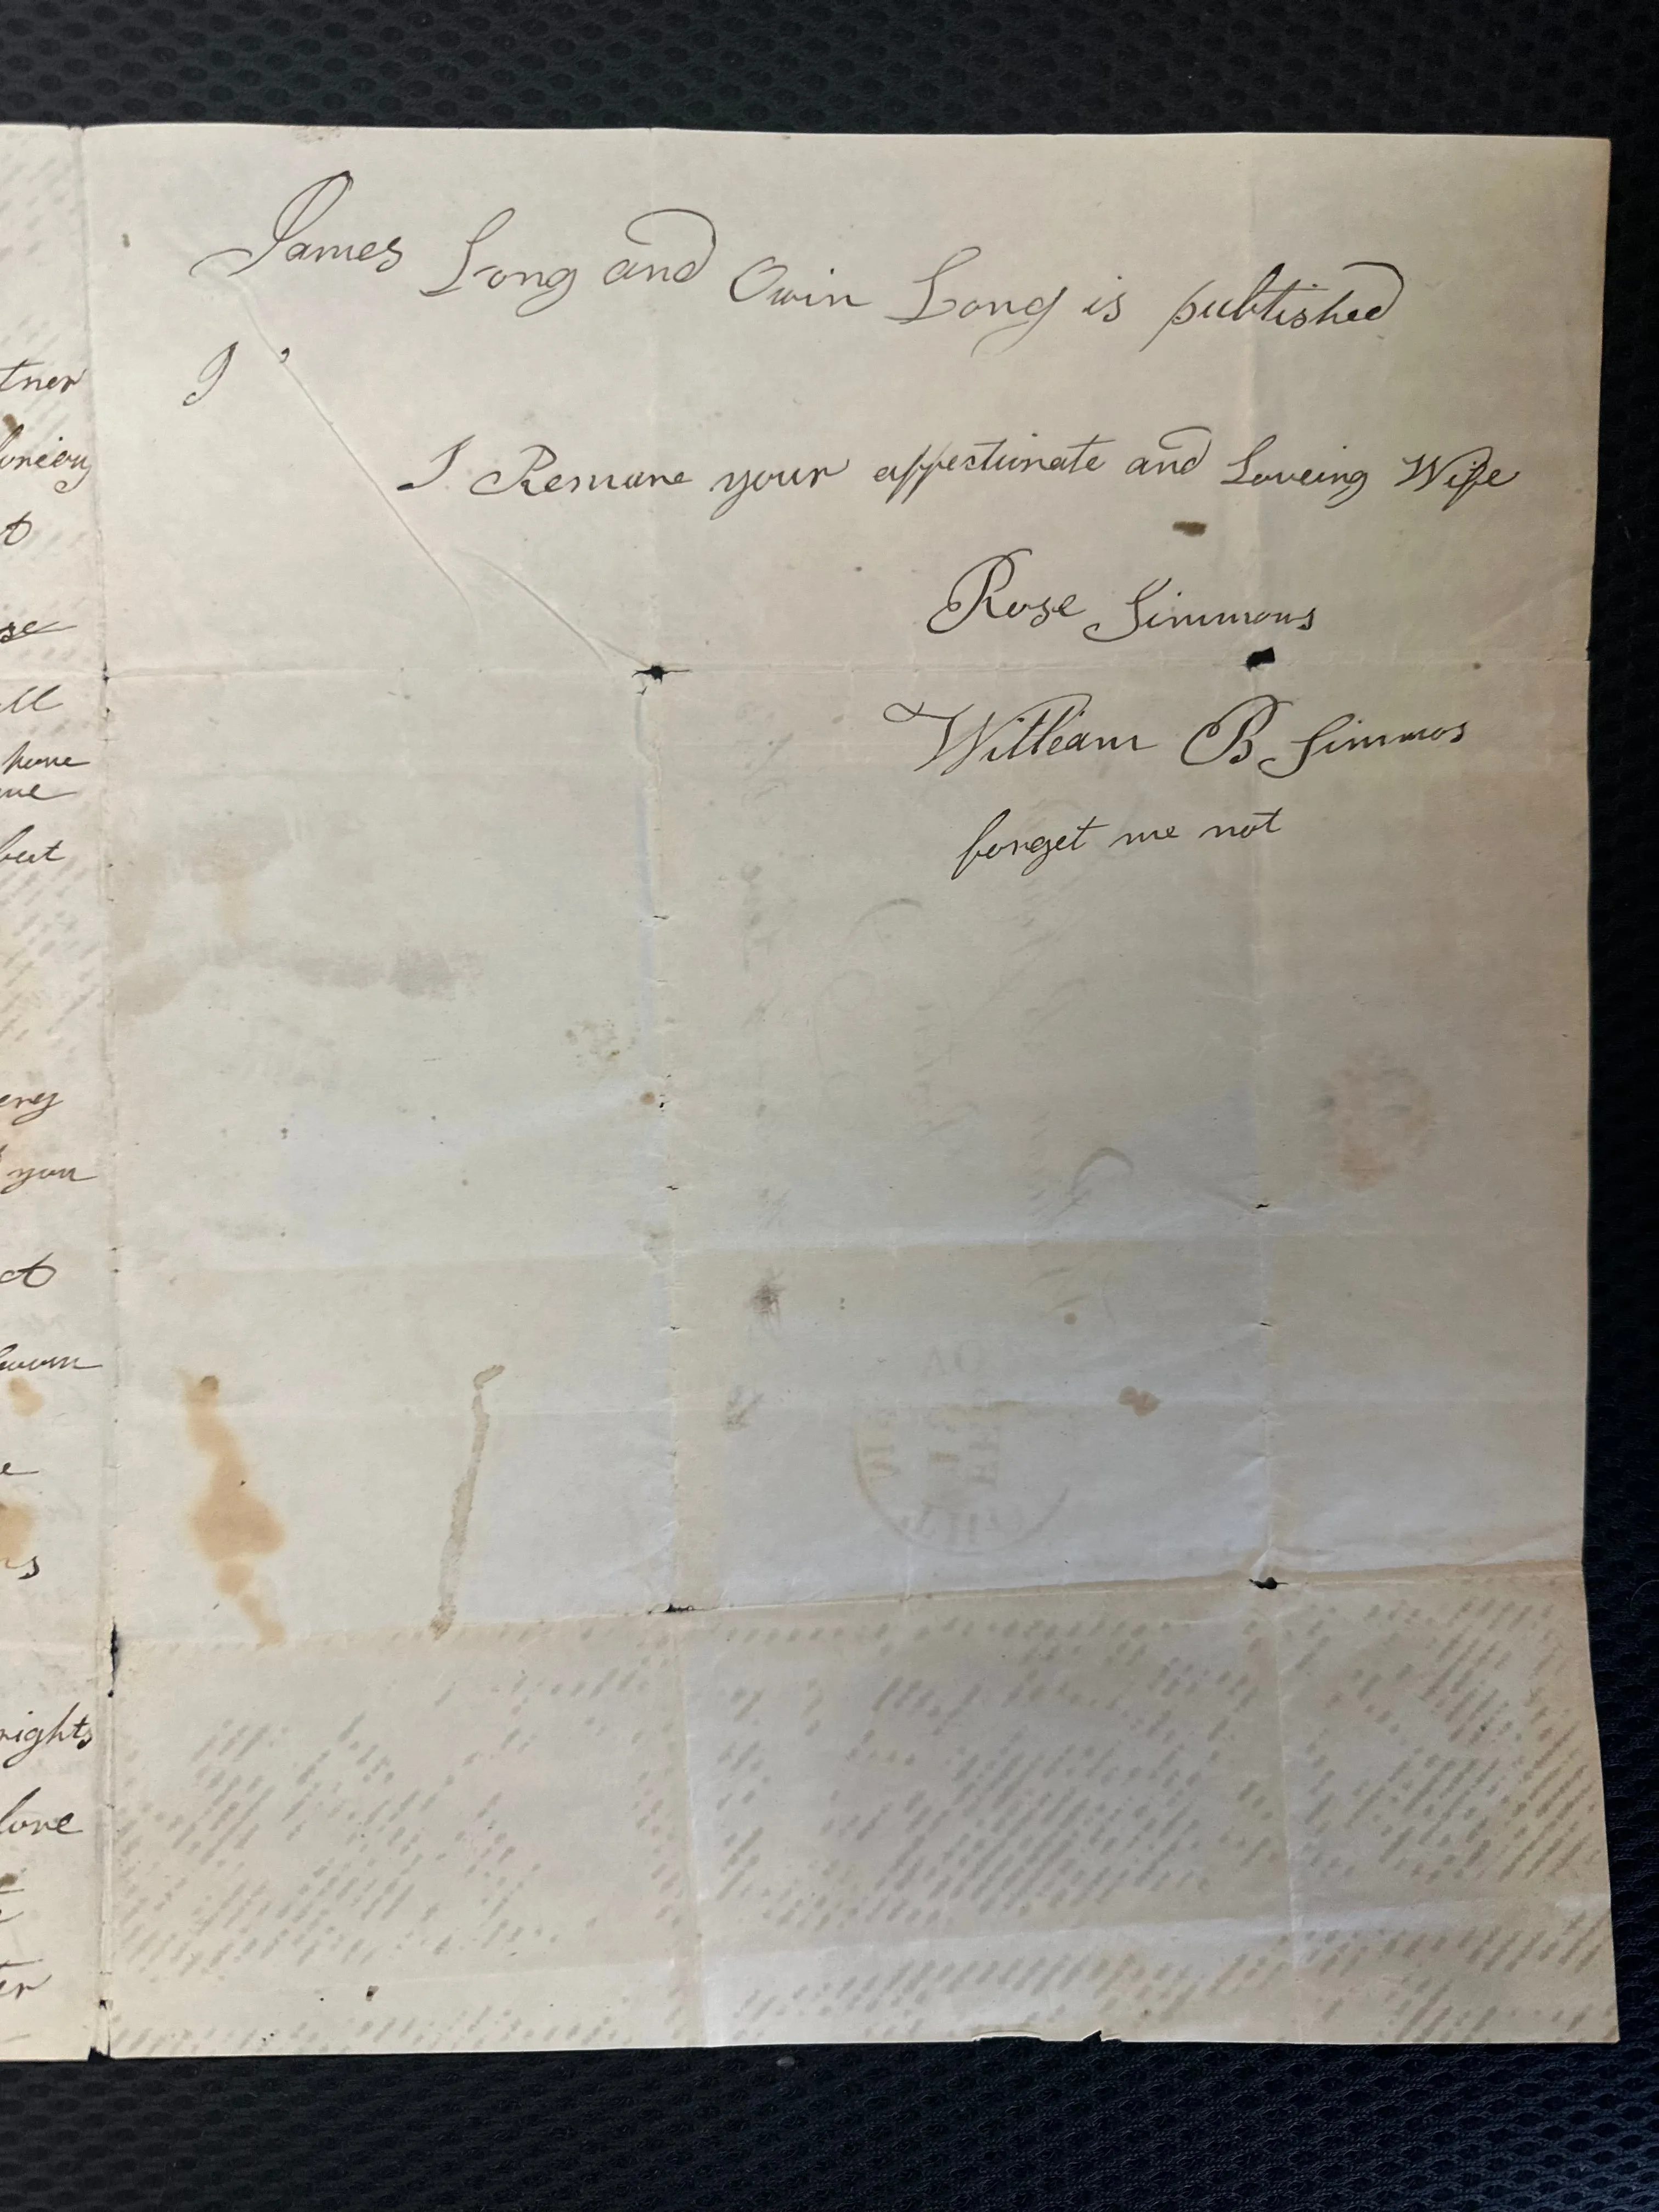 tner
se
ll
home
me
but
ery
you
rights
love
ter
James Long and Owin Long is published
I
I Remane your affectinate and Loveing Wife
Rose Simmons
William B Simmos
forget me not